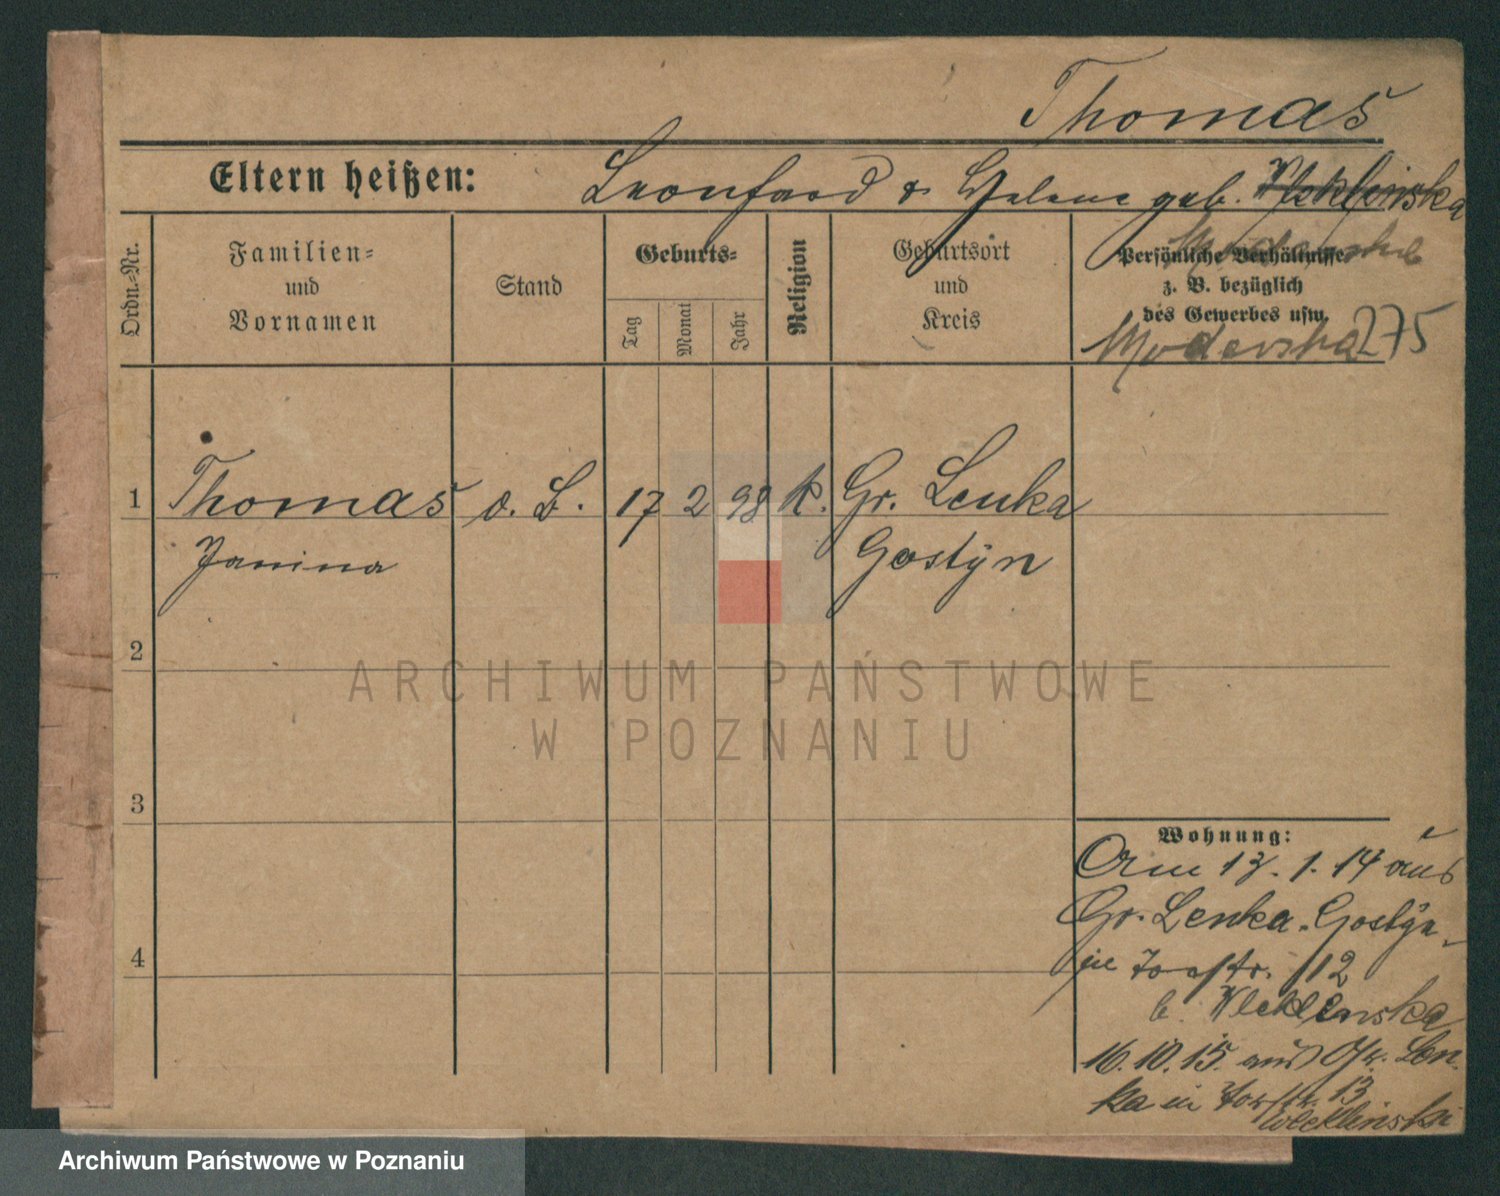 Thomas
Eltern heißen: Leonhard & Helene geb.
Ordn.-Nr.
Familien=
und
Vornamen
Stand
Geburts=
Tag
Monat
Jahr
Religion
Geburtsort
und
Kreis
Persönliche Verhältnisse
z. B. bezüglich
des Gewerbes usw.
Moderska 275
1 Thomas o. B. 17 2 98 k. Gr. Lenka
Janina Gostyn
2
3
4
Wohnung:
Am 13. 1. 14 aus
Gr. Lenka. Gostyn
in Torstr. 12
b. Wleklinska
16. 10. 15. aus Gr. Len
ka in Torstr. 13
Wleklinski
ARCHIWUM PAŃSTWOWE
W POZNANIU
Archiwum Państwowe w Poznaniu